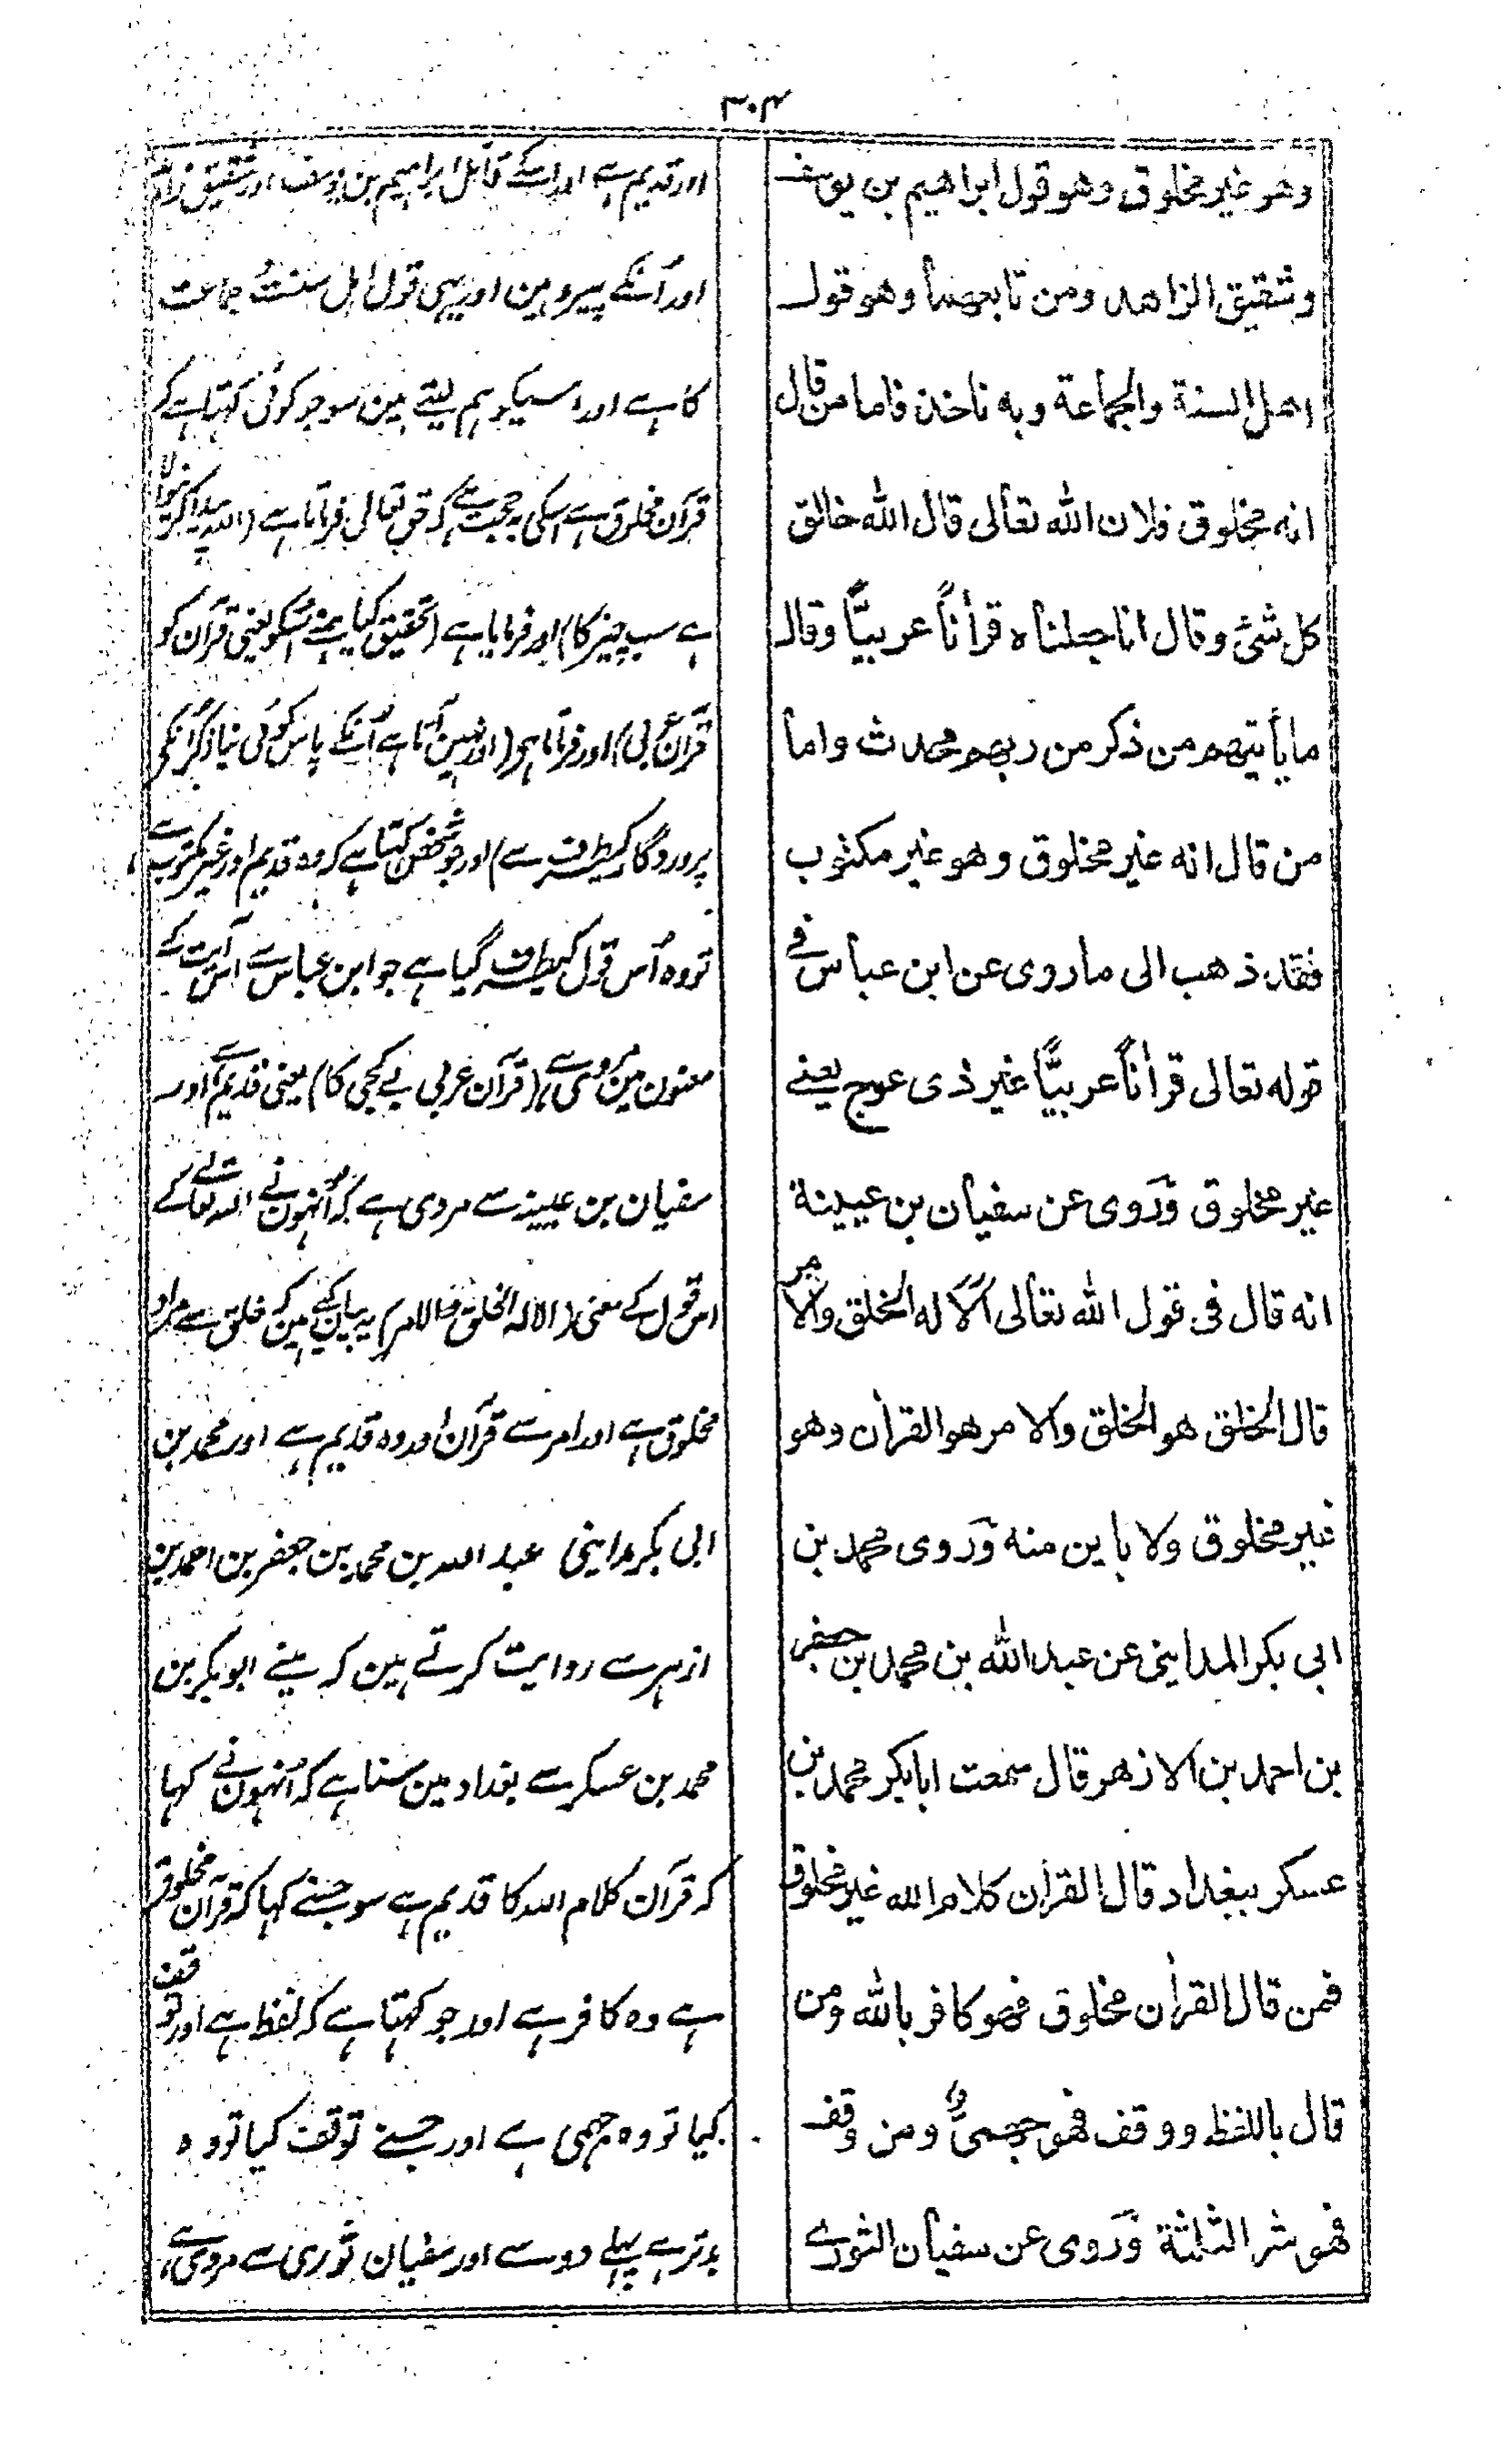 ۳۰۴
وهو غير مخلوق وهو قول ابراهيم بن يوسف
وشقيق الزاهد ومن تابعهما وهو قول
اهل السنة والجماعة وبه ناخذ فاما من قال
انه مخلوق فلان الله تعالى قال الله خالق
كل شئ وقال انا جعلناه قراٰناً عربيًّا وقال
ما يأتيهم من ذكر من ربهم محدث واما
من قال انه غير مخلوق وهو غير مكتوب
فقد ذهب الى ما روى عن ابن عباس فى
قوله تعالى قراٰناً عربيًّا غير ذى عوج يعنے
غير مخلوق وَروى عن سفيان بن عيينة
انه قال فى قول الله تعالى اَلَا له الخلق والامر
قال الخلق هو الخلق والامر هو القراٰن وهو
غير مخلوق ولا باين منه وَروى محمد بن
ابى بكر المدايني عن عبد الله بن محمد بن جعفر
بن احمد بن الازهر قال سمعت ابابكر محمد بن
عسكر ببغداد قال القراٰن كلام الله غير مخلوق
فمن قال القراٰن مخلوق فهو كافر بالله ومن
قال باللفظ ووقف فهو جهمىٌّ ومن وقف
فهو شر الثلثة وَروى عن سفيان الثورے
اور قدیم ہے اور اسکے قائل ابراہیم بن یوسف اور شقیق زاہد
اور اُنکے پیرو ہین اور یہی قول اہل سنت جماعت
کا ہے اور اسیکو ہم لیتے ہین سو جو کوئی کہتا ہے کہ
قرآن مخلوق ہے اسکی یہ حجت ہے کہ حق تعالی فرماتا ہے (اللہ پیدا کرنیوالا
ہے سب چیز کا) اور فرمایا ہے (تحقیق کیا ہمنے اُسکو یعنی قرآن کو
قرآن عربی) اور فرماتا ہو (اور نہین آتا ہے اُنکے پاس کوئی نیا ذکر اُنکی
پروردگار کیطرف سے) اور جو شخص کہتا ہے کہ وہ قدیم اور غیر مکتوب ہے
تو وہ اُس قول کیطرف گیا ہے جو ابن عباس سے اس آیت کے
معنون مین مروی ہے (قرآن عربی بے کجی کا) یعنی قدیم ہے اور
سفیان بن عیینہ سے مروی ہے کہ اُنہون نے اللہ تعالے کے
اس قول کے معنی (الا لہ الخلق والامر) یہ بیان کیے ہین کہ خلق سے مراد
مخلوق ہے اور امر سے قرآن اور وہ قدیم ہے اور محمد بن
ابی بکر مداینی عبد اللہ بن محمد بن جعفر بن احمد بن
ازہر سے روایت کرتے ہین کہ مینے ابو بکر بن
محمد بن عسکر سے بغداد مین سنا ہے کہ اُنہون نے کہا
کہ قرآن کلام اللہ کا قدیم ہے سو جسنے کہا کہ قرآن مخلوق
ہے وہ کافر ہے اور جو کہتا ہے کہ لفظ ہے اور توقف
کیا تو وہ جہمی ہے اور جسنے توقف کیا تو وہ
بدتر ہے پہلے دو سے اور سفیان ثوری سے مروی ہے